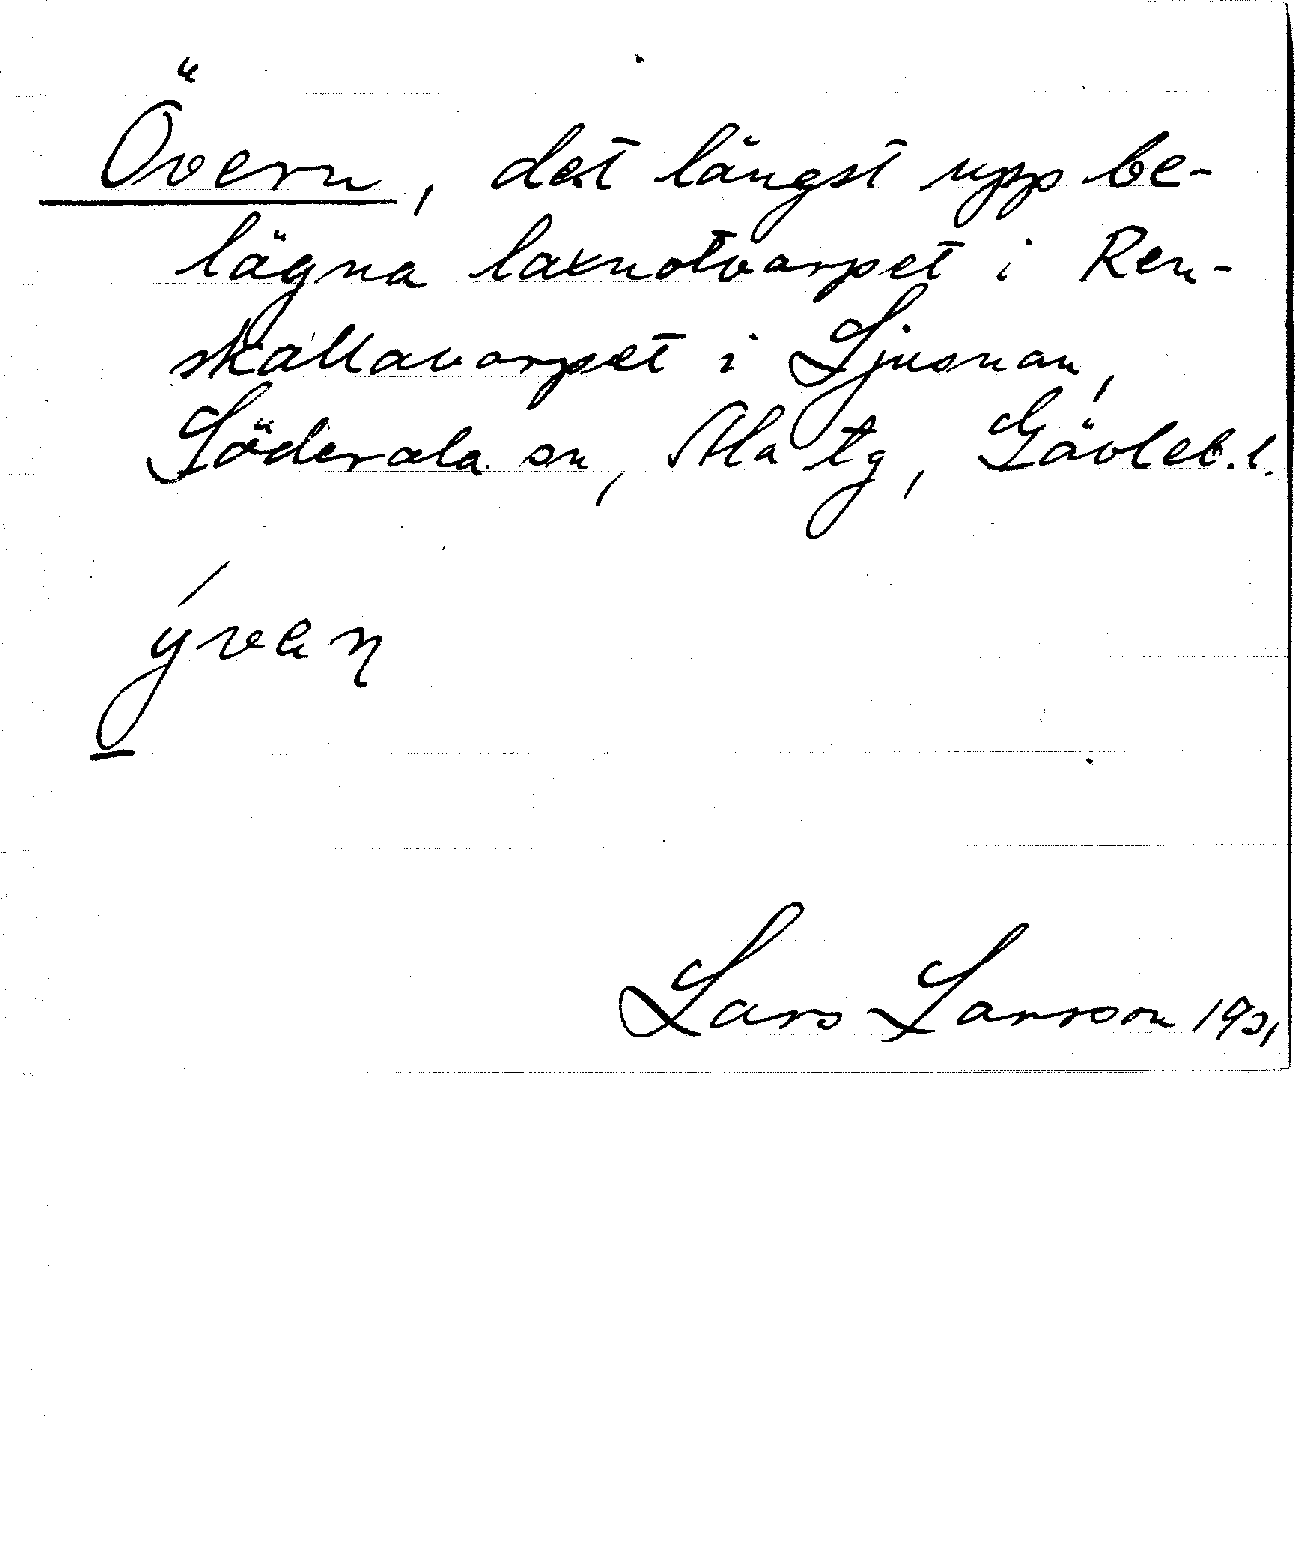 Övern, det längst upp be-
lägna laxnotvarpet i Ren-
skallavarpet i Ljusnan,
Söderala sn, Ala tg, Gävleb. l.
Lars Larsson